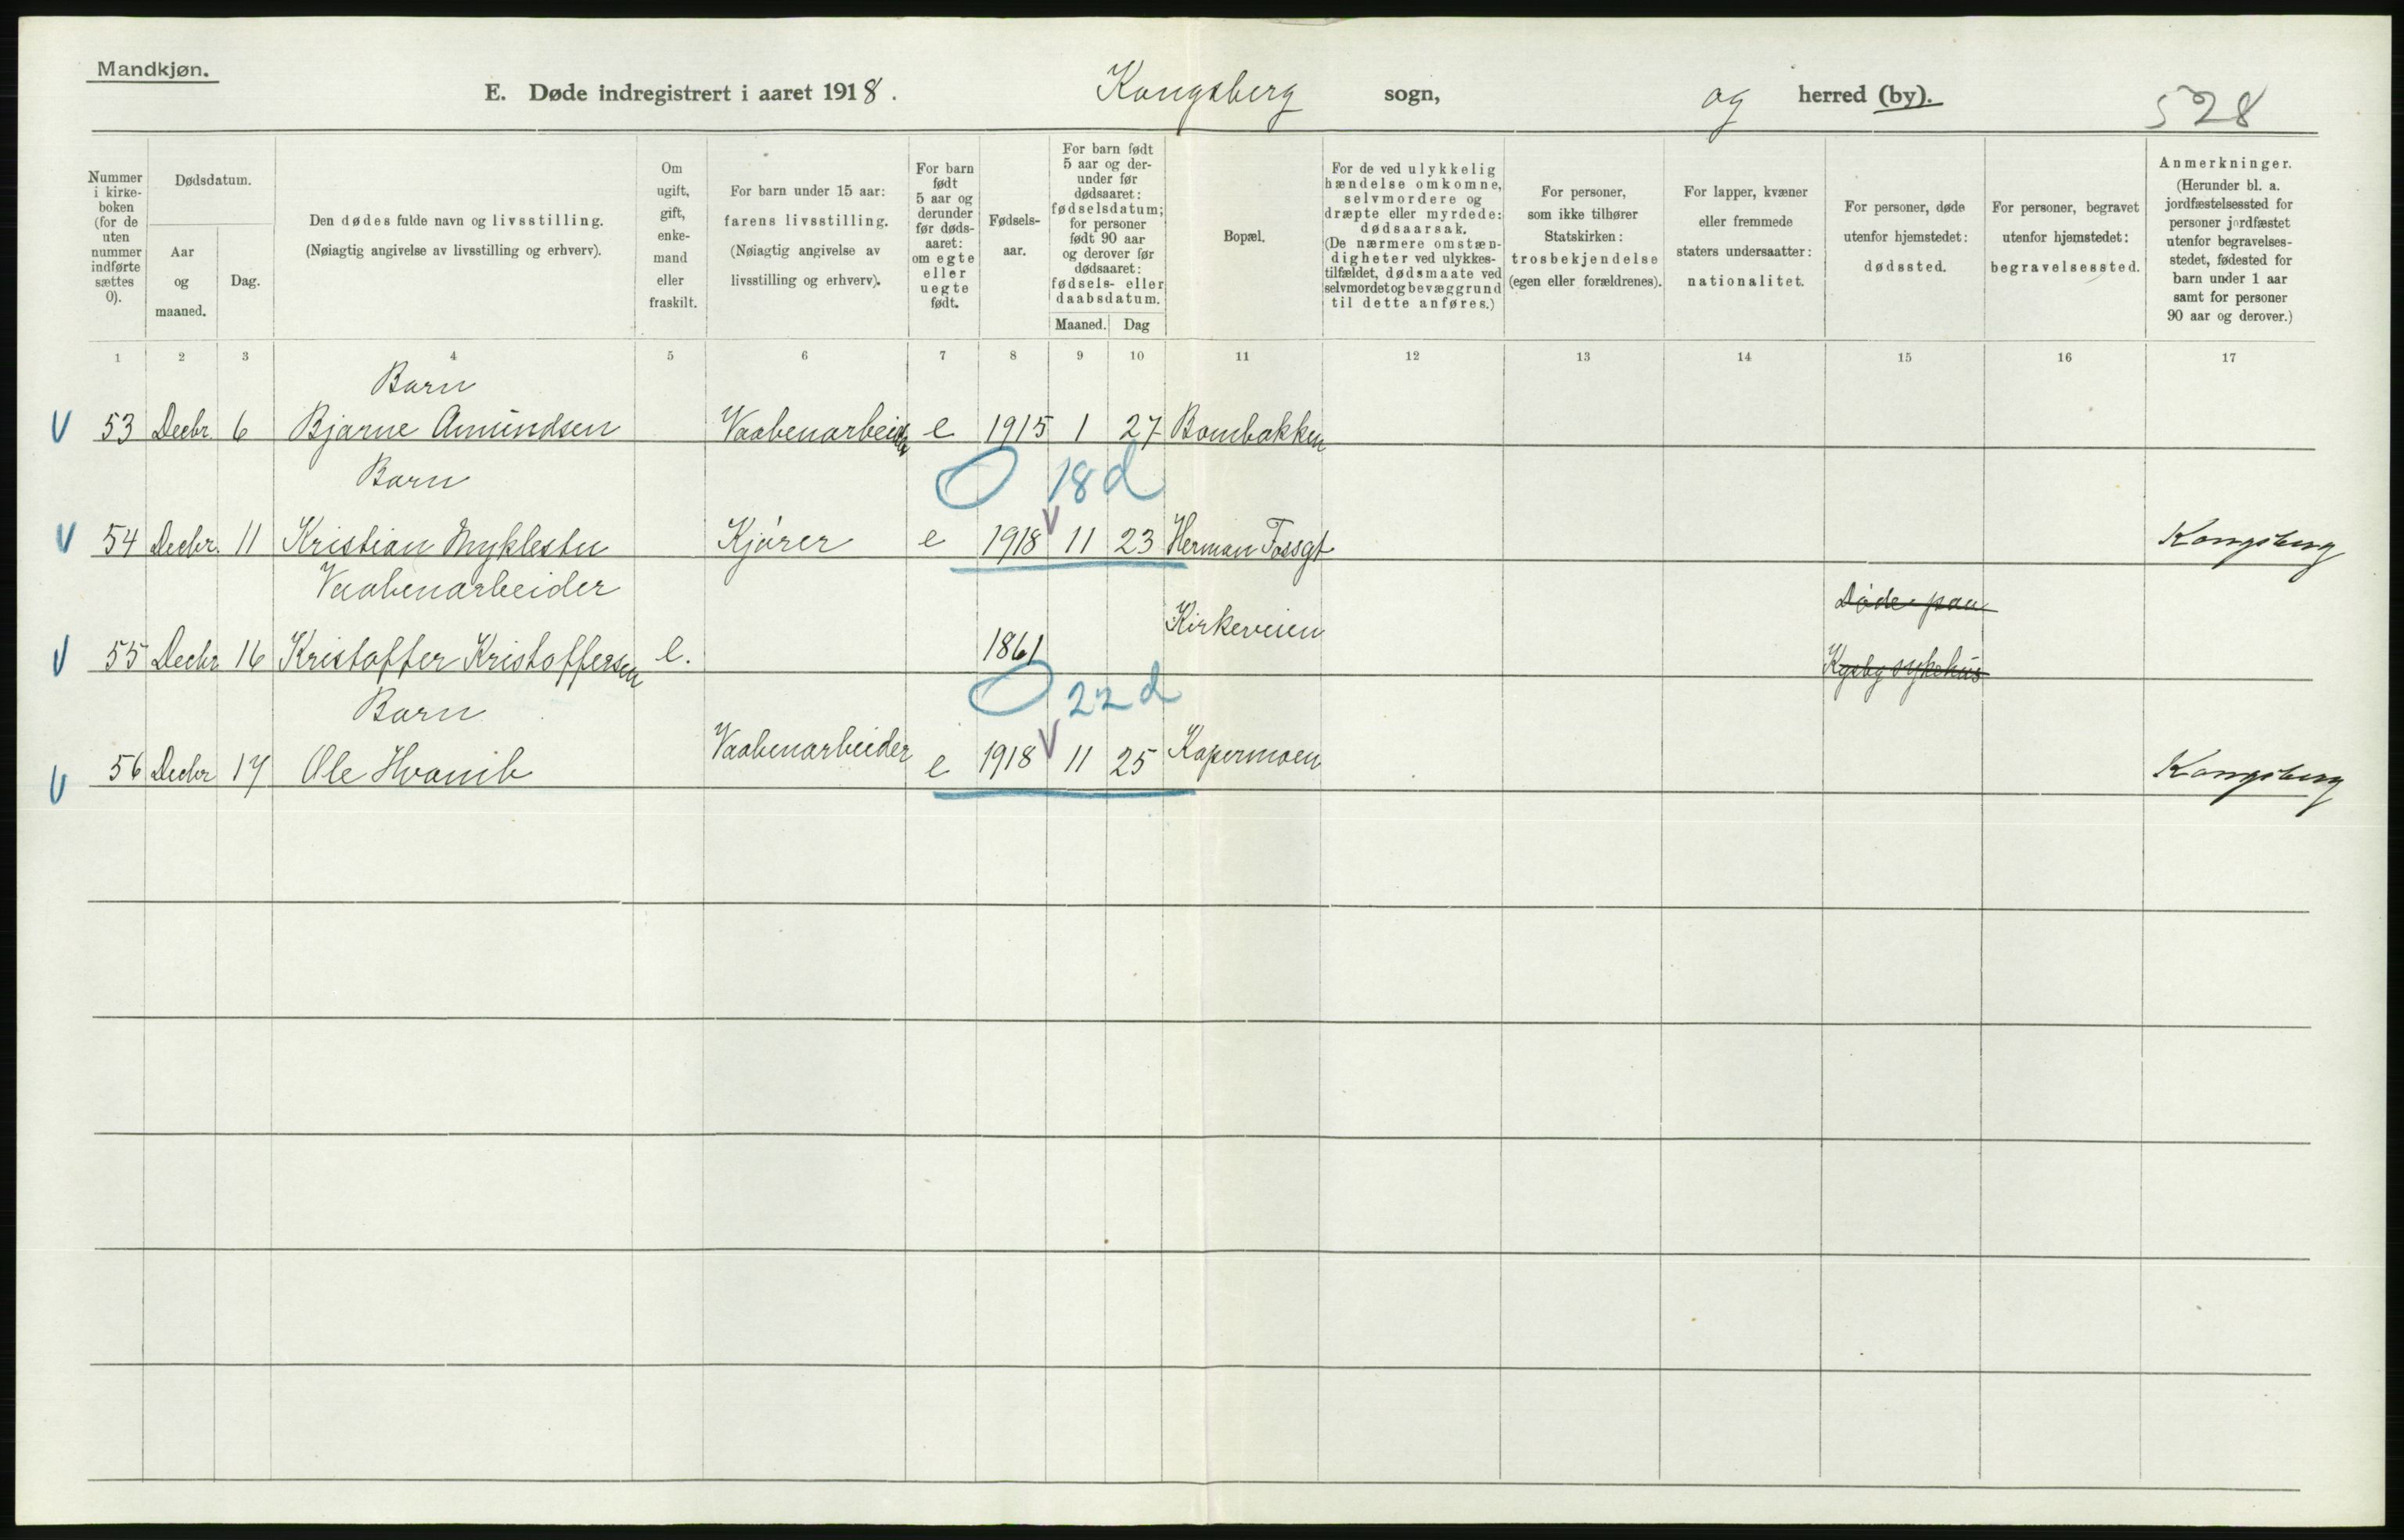 Mandkjøn.
E. Døde indregistrert i aaret 1918. Kongsberg sogn, og herred (by). 528
Nummer i kirkeboken (for de uten nummer indførte sættes 0).
Dødsdatum.
Aar og maaned.
Dag.
Den dødes fulde navn og livsstilling. (Nøiagtig angivelse av livsstilling og erhverv).
Om ugift, gift, enkemand eller fraskilt.
For barn under 15 aar: farens livsstilling. (Nøiagtig angivelse av livsstilling og erhverv).
For barn født 5 aar og derunder før dødsaaret: om egte eller uegte født.
Fødselsaar.
For barn født 5 aar og derunder før dødsaaret: fødselsdatum; for personer født 90 aar og derover før dødsaaret: fødsels- eller daabsdatum.
Maaned. Dag
Bopæl.
For de ved ulykkelig hændelse omkomne, selvmordere og dræpte eller myrdede: dødsaarsak. (De nærmere omstændigheter ved ulykkestilfældet, dødsmaate ved selvmordet og bevæggrund til dette anføres.)
For personer, som ikke tilhører Statskirken: trosbekjendelse (egen eller forældrenes).
For lapper, kvæner eller fremmede staters undersaatter: nationalitet.
For personer, døde utenfor hjemstedet: dødssted.
For personer, begravet utenfor hjemstedet: begravelsessted.
Anmerkninger. (Herunder bl. a. jordfæstelsessted for personer jordfæstet utenfor begravelsesstedet, fødested for barn under 1 aar samt for personer 90 aar og derover.)
1 2 3 4 5 6 7 8 9 10 11 12 13 14 15 16 17
Barn
V 53 Decbr 6 Bjarne Amundsen Vaabenarbeider e 1915 1 27 Bombakken
Barn
O 18 d
V 54 Decbr. 11 Kristian Myklestu Kjører e 1918 V 11 23 Herman Fossgt Kongsberg
Vaabenarbeider Døde paa
V 55 Decbr 16 Kristoffer Kristoffersen e. 1861 Kirkeveien Kgsbg sykehus
Barn
O 22 d
V 56 Decbr 17 Ole Hvamb Vaabenarbeider e 1918 V 11 25 Kapermoen Kongsberg